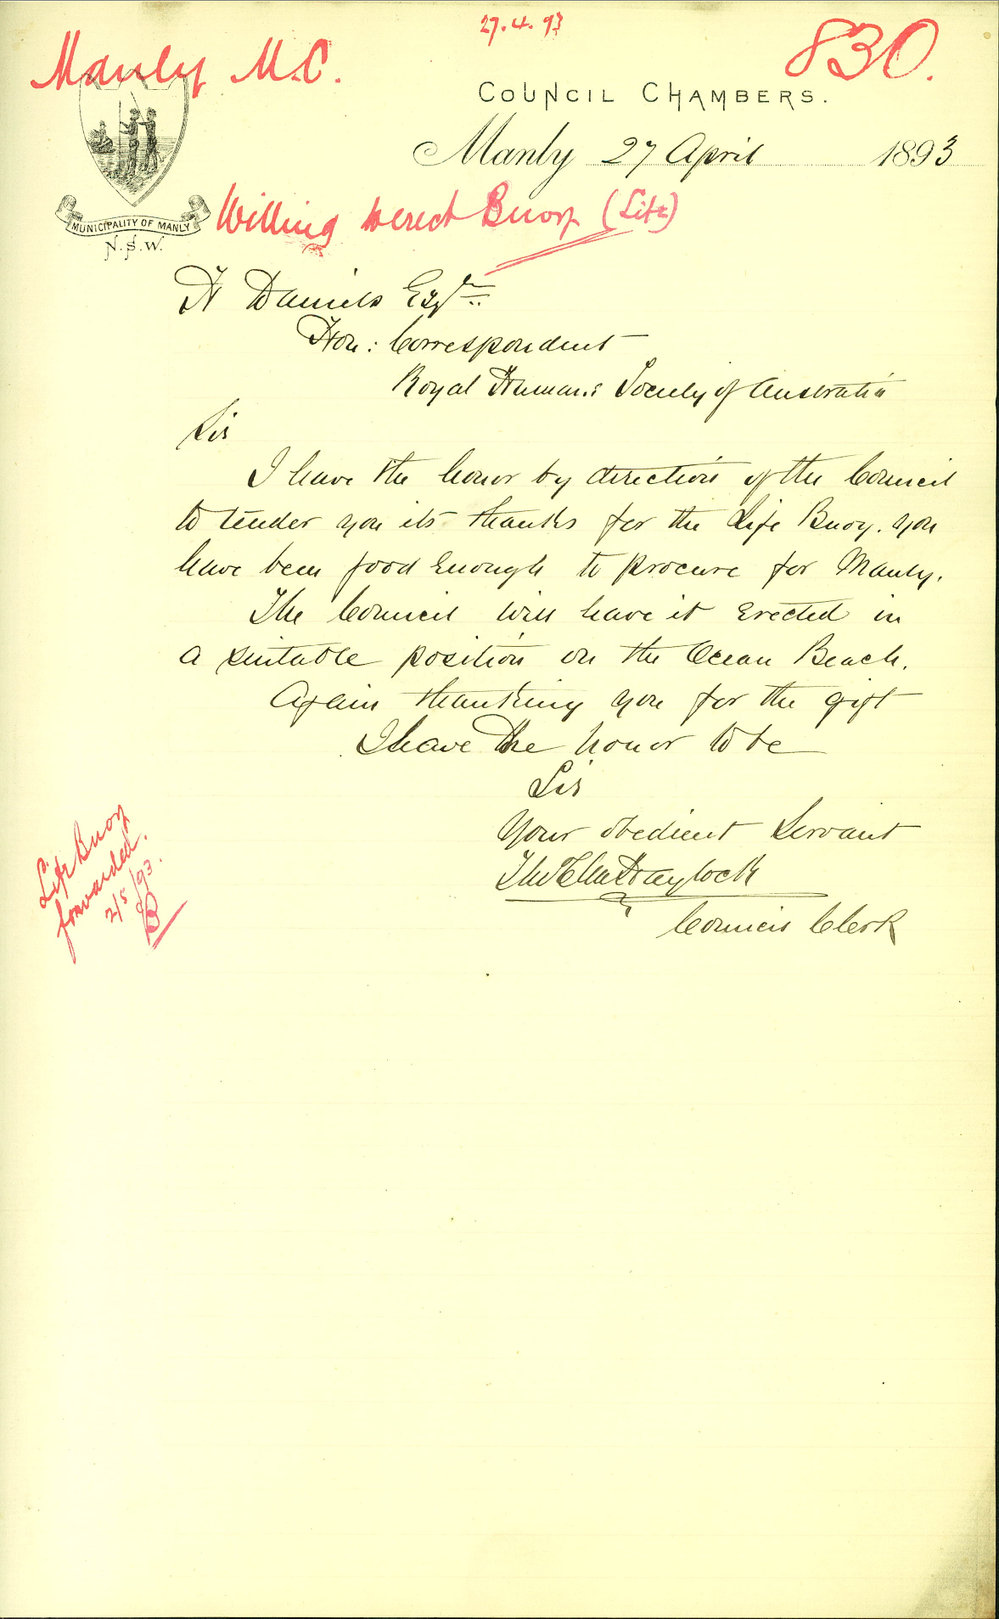 27.4.93
Manly M.C.
830.
COUNCIL CHAMBERS.
Manly 27 April 1893
MUNICIPALITY OF MANLY
N.S.W.
Willing to erect Buoy (Life)
H Daniels Esqr
Hon: Correspondent
Royal Humane Society of Australia
Sir
I have the honor by direction of the Council
to tender you its thanks for the Life Buoy. you
have been good enough to procure for Manly.
The Council will have it Erected in
a suitable position on the Ocean Beach.
Again thanking you for the gift
I have the honor to be
Sir
Your obedient Servant
Haylock
Council Clerk
Life Buoy
forwarded.
2/5/93.
B